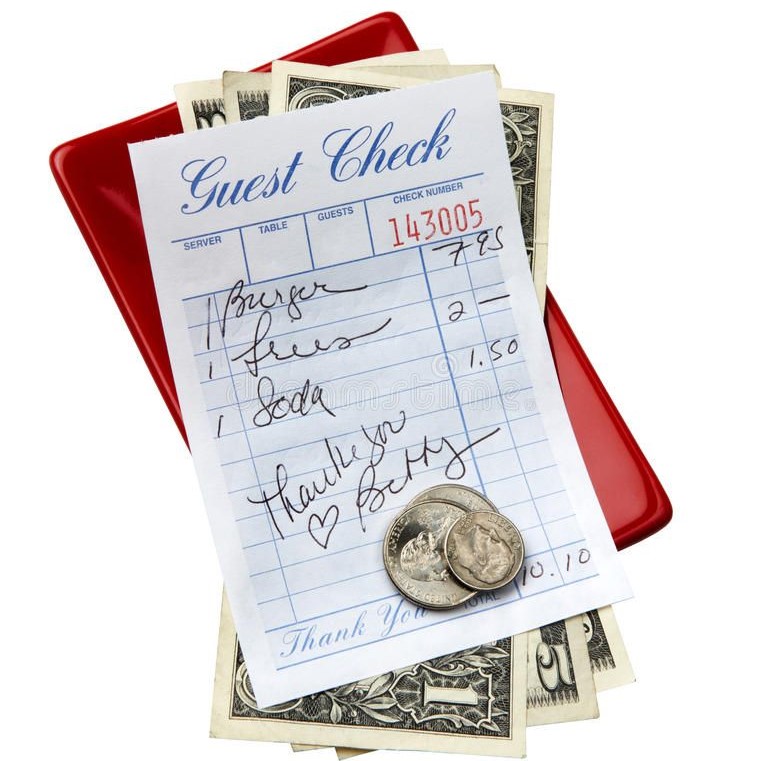 Guest Check
SERVER TABLE GUESTS CHECK NUMBER
143005
1 Burger 7 95
1 Fries 2 —
1 Soda 1.50
Thank you
♡ Betty
10.10
Thank You TOTAL
1
5
dreamstime